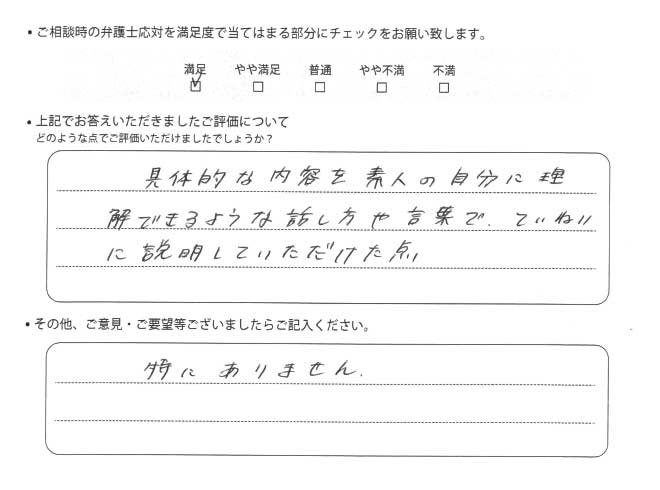 ・ご相談時の弁護士応対を満足度で当てはまる部分にチェックをお願い致します。
満足 やや満足 普通 やや不満 不満
☑ □ □ □ □
・上記でお答えいただきましたご評価について
どのような点でご評価いただけましたでしょうか？
具体的な内容を素人の自分に理
解できるような話し方や言葉で、ていねい
に説明していただけた点
・その他、ご意見・ご要望等ございましたらご記入ください。
特にありません.